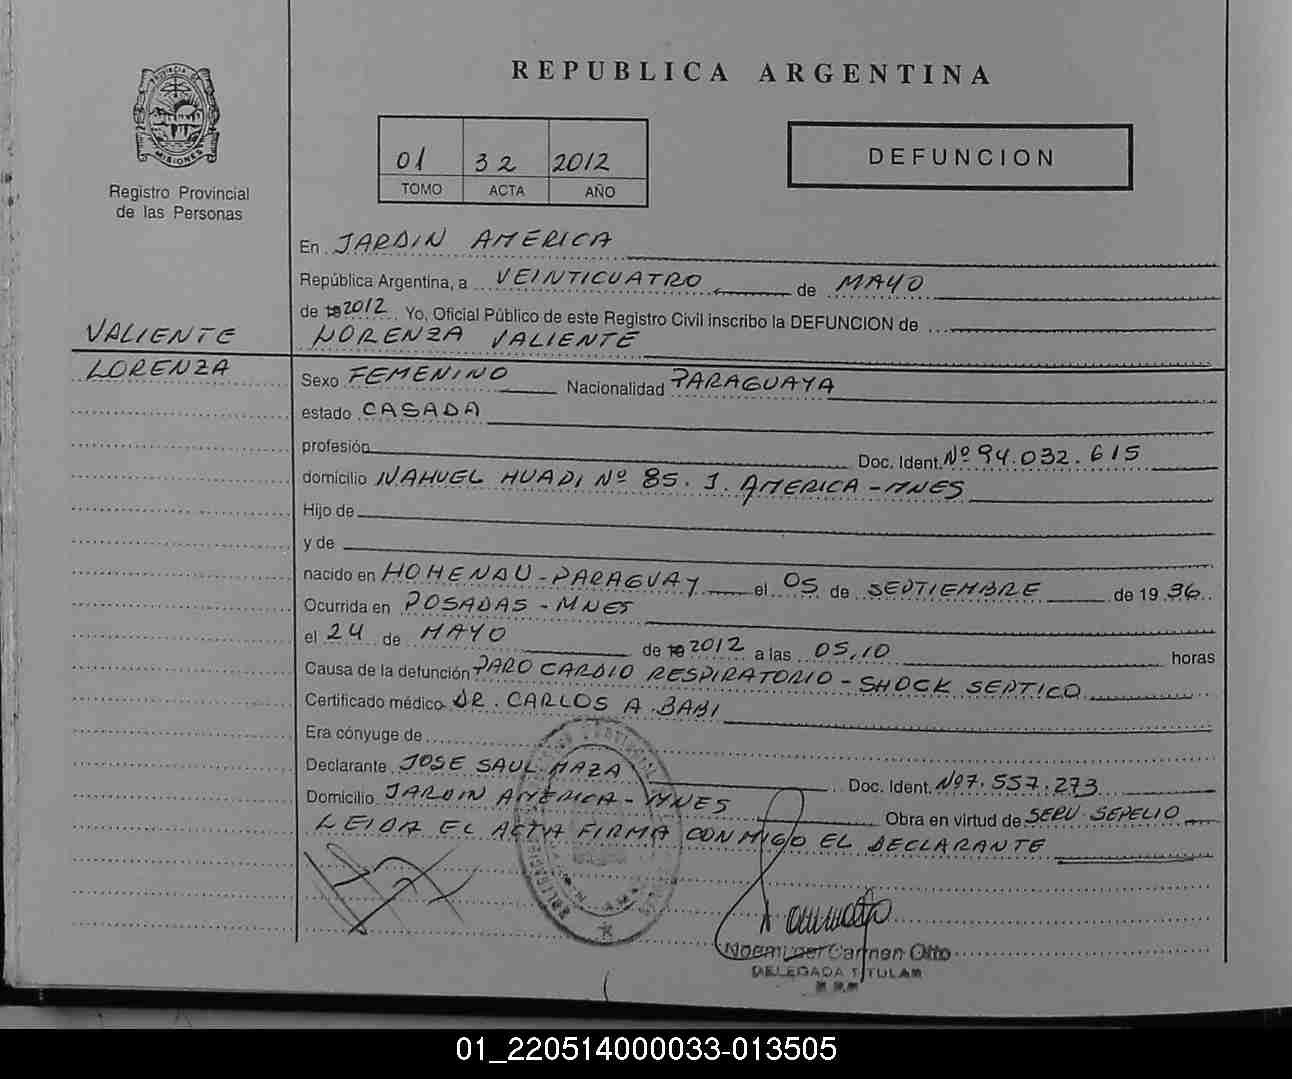 REPUBLICA ARGENTINA
PROVINCIA DE
MISIONES
Registro Provincial
de las Personas
01 32 2012
TOMO ACTA AÑO
DEFUNCION
En JARDIN AMERICA
República Argentina, a VEINTICUATRO de MAYO
de 19 2012 Yo, Oficial Público de este Registro Civil inscribo la DEFUNCION de
VALIENTE
LORENZA VALIENTE
LORENZA
Sexo FEMENINO Nacionalidad PARAGUAYA
estado CASADA
profesión Doc. Ident. Nº 94.032.615
domicilio NAHUEL HUAPI Nº 85. J. AMERICA-MNES
Hijo de
y de
nacido en HOHENAU-PARAGUAY el 05 de SEPTIEMBRE de 1936
Ocurrida en POSADAS-MNES
el 24 de MAYO de 19 2012 a las 05,10 horas
Causa de la defunción PARO CARDIO RESPIRATORIO-SHOCK SEPTICO
Certificado médico DR. CARLOS A. BABI
Era cónyuge de
Declarante JOSE SAUL MAZA Doc. Ident. Nº 7.557.273
Domicilio JARDIN AMERICA-MNES Obra en virtud de SERV. SEPELIO
LEIDA EL ACTA FIRMA CONMIGO EL DECLARANTE
Noemi del Carmen Otto
DELEGADA TITULAR
01_220514000033-013505